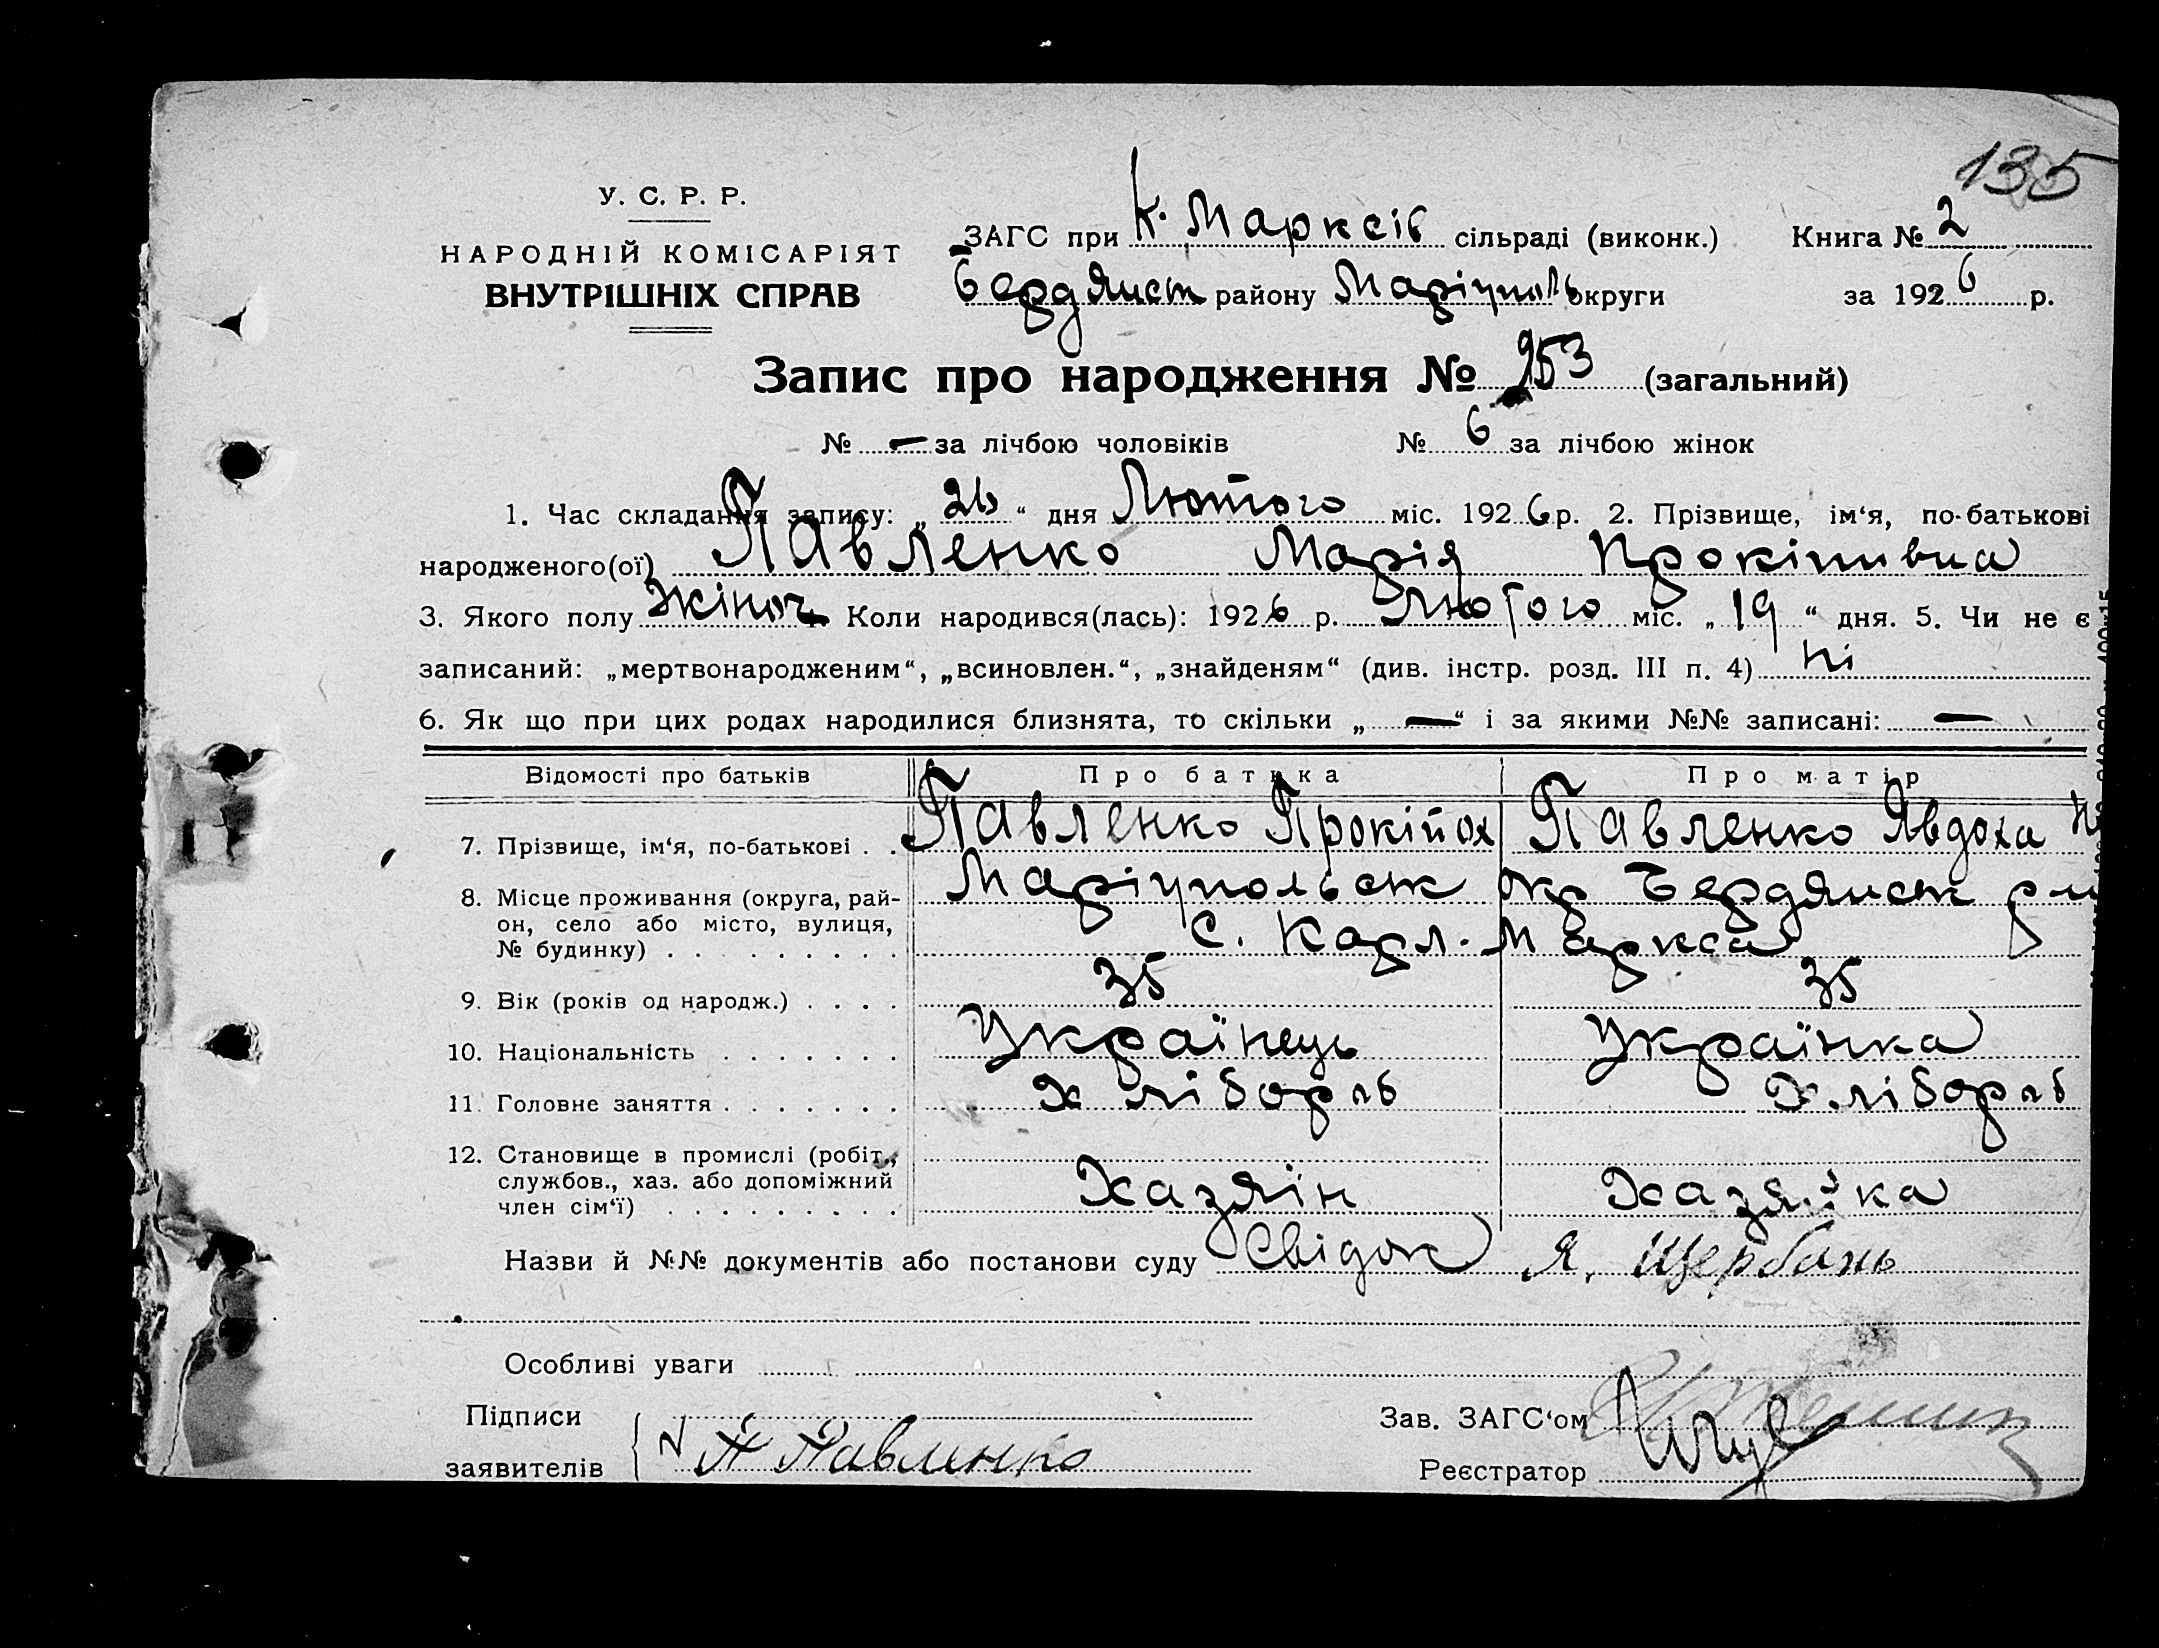 135
У. С. Р. Р.
НАРОДНІЙ КОМІСАРІЯТ
ВНУТРІШНІХ СПРАВ
ЗАГС при К. Марксів сільраді (виконк.) Книга № 2
Бердянськ району Маріуполь округи за 1926 р.
Запис про народження № 253 (загальний)
№ — за лічбою чоловіків № 6 за лічбою жінок
1. Час складання запису: „ 26 “ дня Лютого міс. 1926 р. 2. Прізвище, ім‘я, по-батькові
народженого(ої) Павленко Марія Прокіпивна
3. Якого полу Жіноч 4. Коли народився(лась): 1926 р. Лютого міс. „ 19 “ дня. 5. Чи не є
записаний: „мертвонародженим“, „всиновлен.“, „знайденям“ (див. інстр. розд. III п. 4) Ні
6. Як що при цих родах народилися близнята, то скільки „ — “ і за якими №№ записані: —
Відомості про батьків Про батька Про матір
7. Прізвище, ім‘я, по-батькові . . Павленко Прокіп Павленко Явдоха
8. Місце проживання (округа, рай- Маріупольськ окр Бердянськ
он, село або місто, вулиця, с. Карл. Маркса
№ будинку) . . . . . . . . .
9. Вік (років од народж.) . . . . 35 35
10. Національність . . . . . . . Українець Українка
11. Головне заняття . . . . . . . Хлібороб Хлібороб
12. Становище в промислі (робіт.,
службов., хаз. або допоміжний Хазяїн Хазяйка
член сім‘ї) . . . . . . . . .
Назви й №№ документів або постанови суду Свідок Я. Щербань
Особливі уваги
Підписи Зав. ЗАГС‘ом
заявителів П Павленко Реєстратор